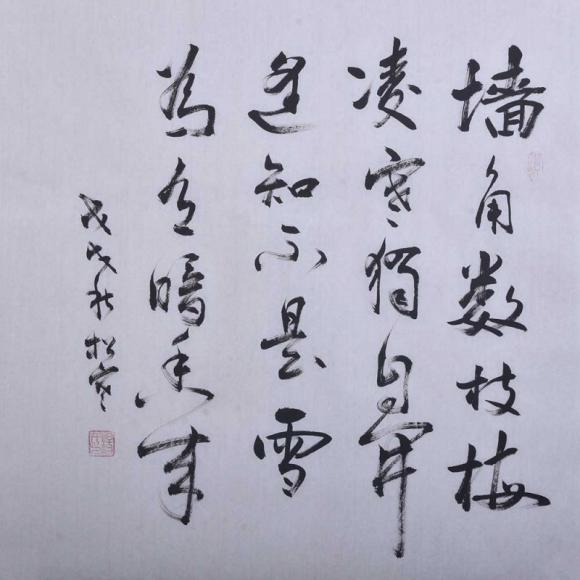 墙角数枝梅
凌寒獨自開
遥知不是雪
為有暗香来
戊戌秋松寒